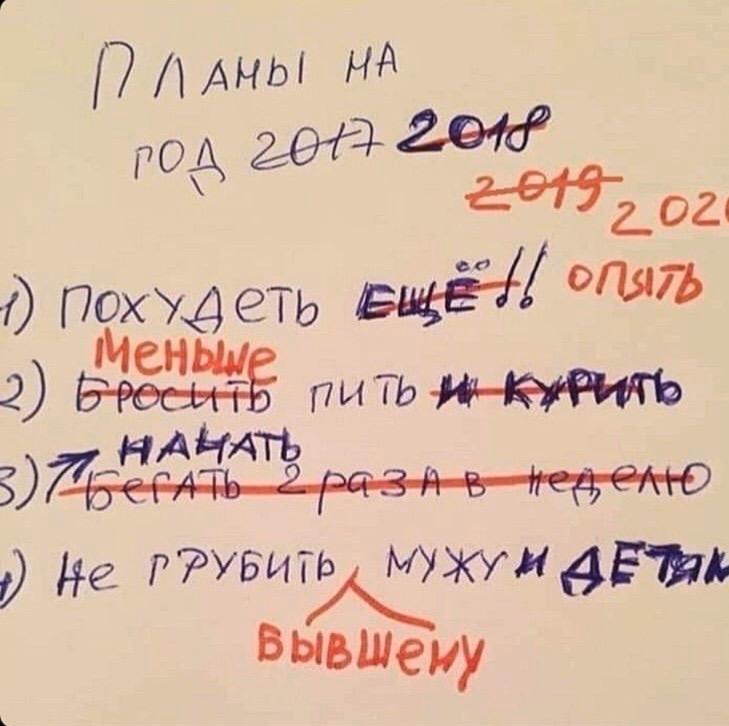 Планы на
год 2017 2018
2019 202
1) Похудеть ЕЩЁ!! опять
меньше
2) Бросить пить и курить
НАЧАТЬ
3) Бегать 2 раза в неделю
4) Не грубить мужу и ДЕТЯМ
бывшему